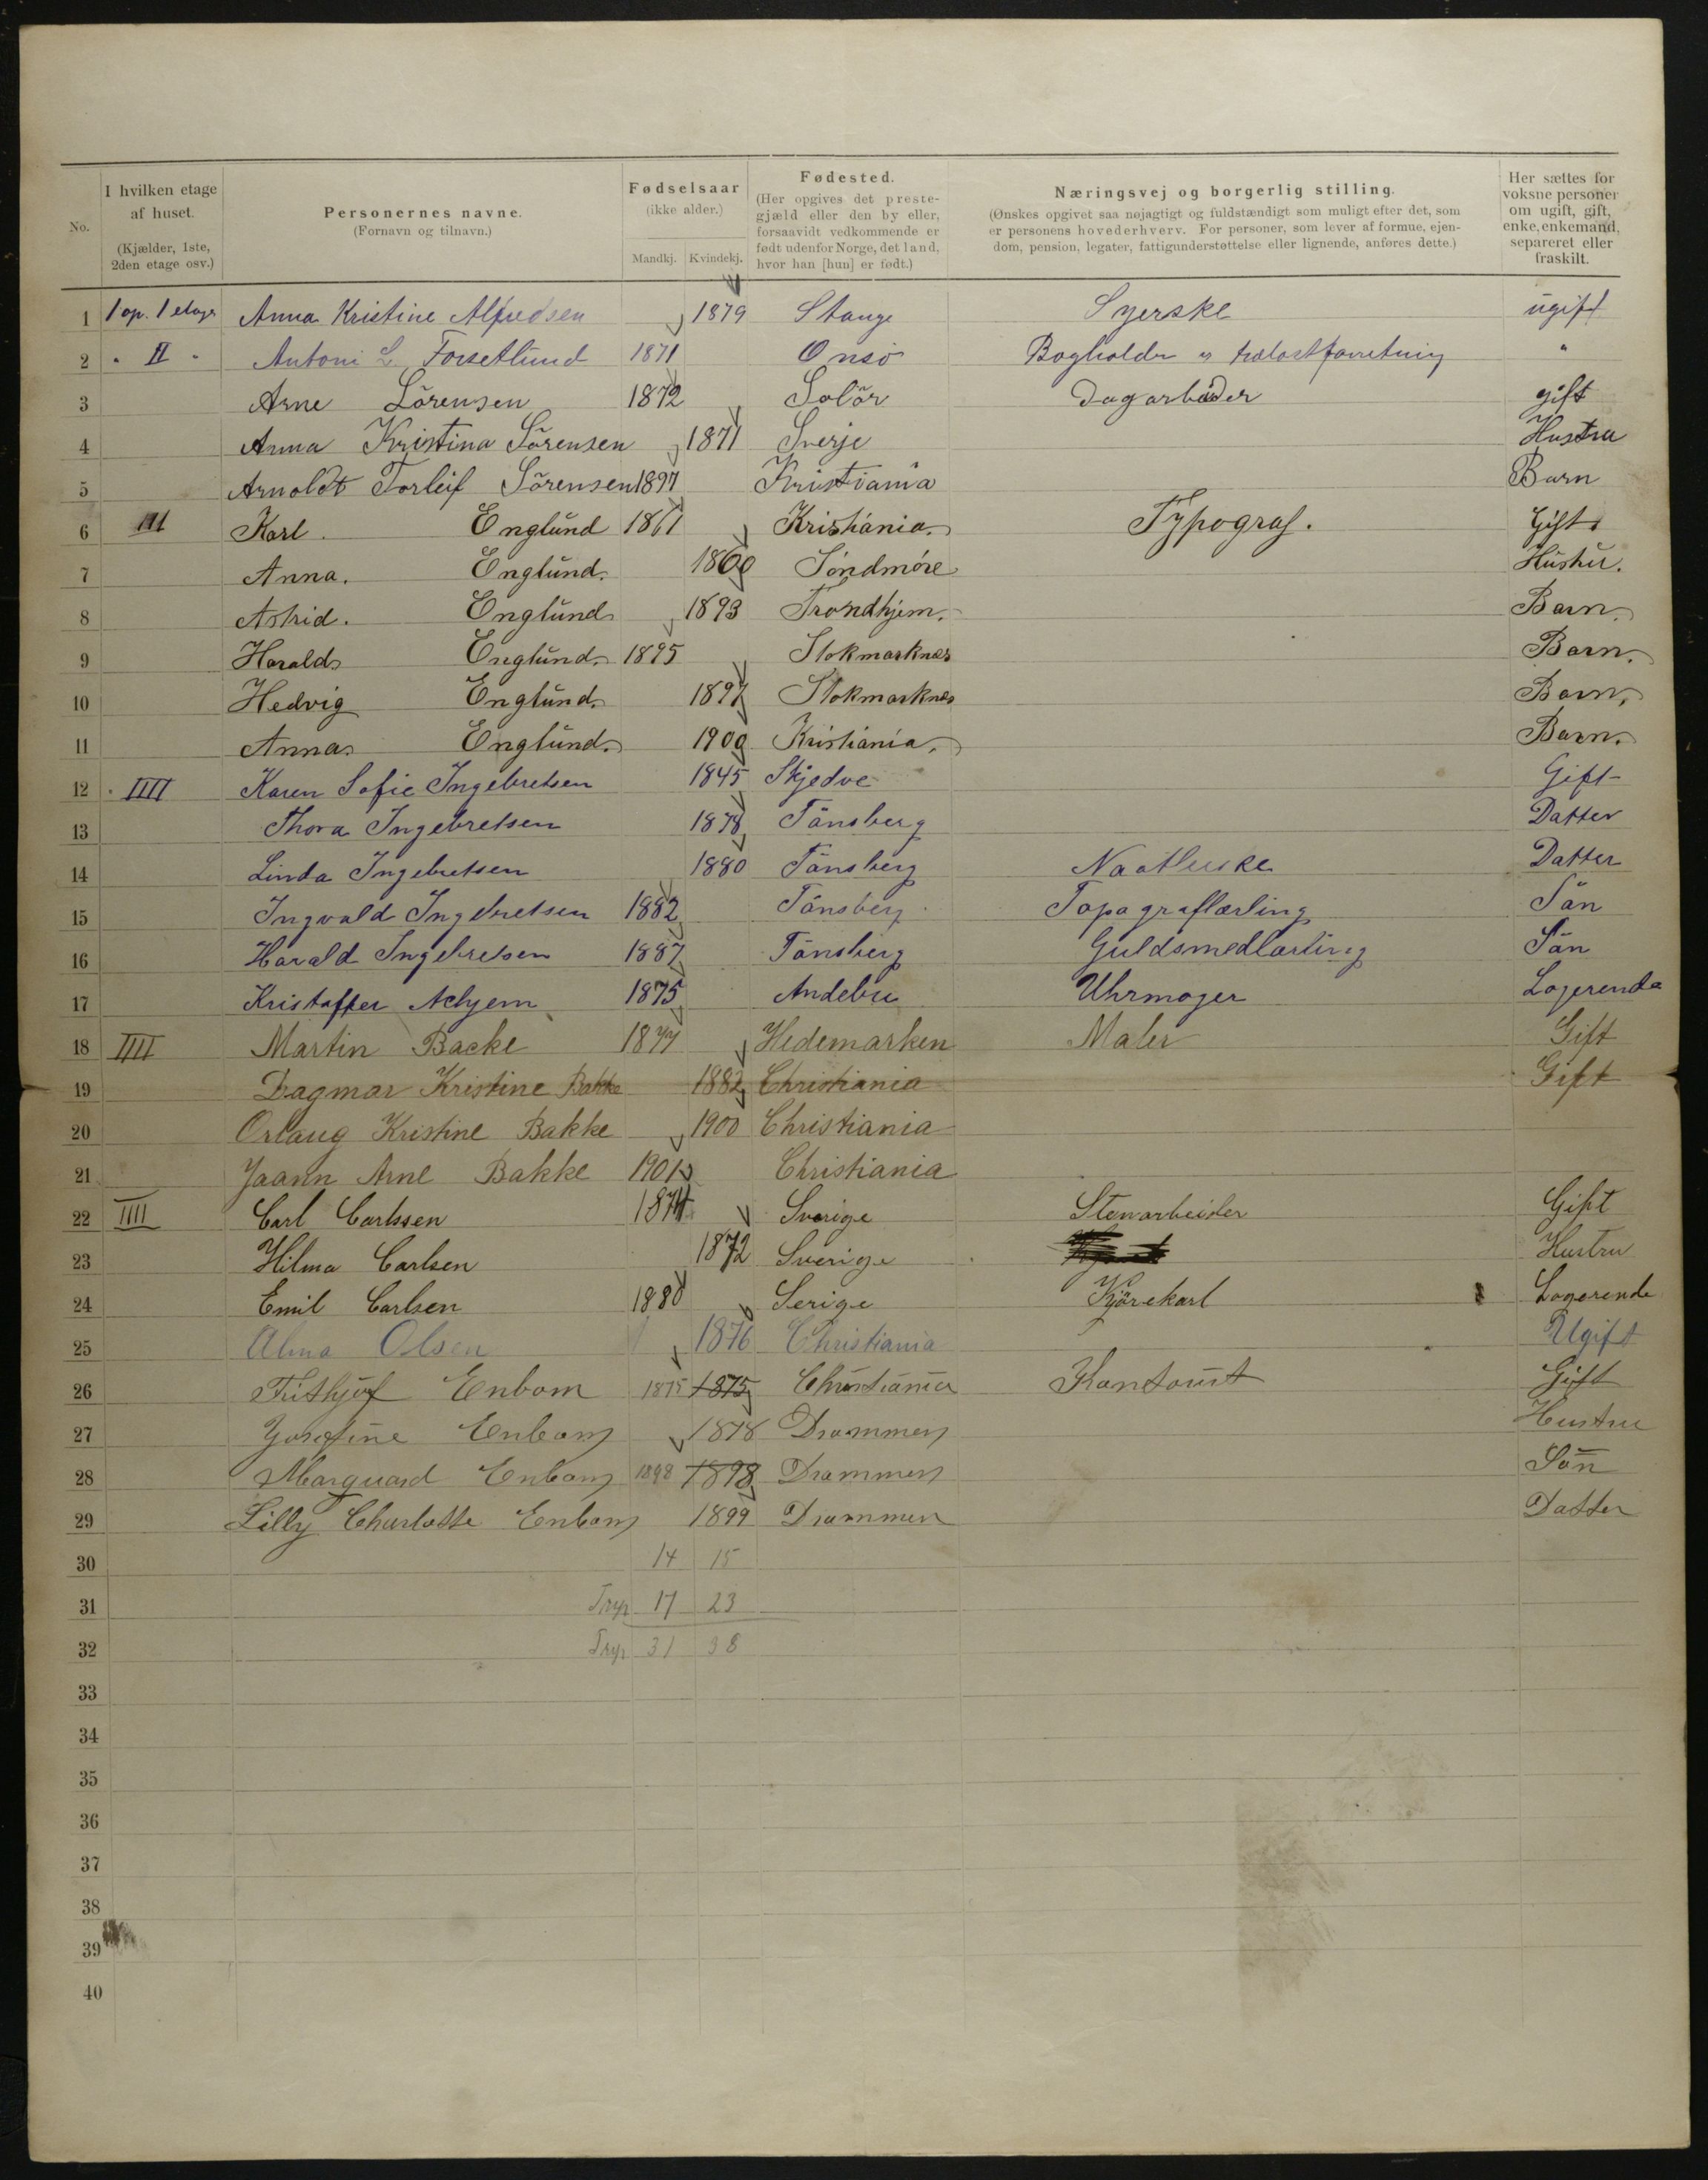 No.
I hvilken etage
af huset.
(Kjælder, 1ste,
2den etage osv.)
Personernes navne.
(Fornavn og tilnavn.)
Fødselsaar
(ikke alder.)
Mandkj. Kvindekj.
Fødested.
(Her opgives det preste-
gjæld eller den by eller,
forsaavidt vedkommende er
født udenfor Norge, det land,
hvor han [hun] er født.)
Næringsvej og borgerlig stilling.
(Ønskes opgivet saa nøjagtigt og fuldstændigt som muligt efter det, som
er personens hovederhverv. For personer, som lever af formue, ejen-
dom, pension, legater, fattigunderstøttelse eller lignende, anføres dette.)
Her sættes for
voksne personer
om ugift, gift,
enke, enkemand,
separeret eller
fraskilt.
1 1 op. 1 etage Anna Kristine Alfredsen 1879 Stange Syerske ugift
2 " II " Antoni L. Forsetlund 1871 Onsö Bogholder trælastforretning "
3 Arne Sörensen 1872 Solör Dagarbeider gift
4 Anna Kristina Sörensen 1871 Sverje Hustru
5 Arnoldt Torleif Sörensen 1897 Kristiania Barn
6 III Karl Englund 1861 Kristiania. Typograf. Gift.
7 Anna. Englund. 1860 Söndmöre Hustru.
8 Astrid. Englund 1893 Trondhjem. Barn.
9 Harald Englund. 1895 Stokmarknæs Barn.
10 Hedvig Englund. 1897 Stokmarknæs Barn.
11 Anna. Englund. 1900 Kristiania. Barn.
12 IIII Karen Sofie Ingebretsen 1845 Skjedve Gift
13 Thora Ingebretsen 1878 Tönsberg Datter
14 Linda Ingebretsen 1880 Tönsberg Naatlerske Datter
15 Ingvald Ingebretsen 1882 Tönsberg Topograflærling Sön
16 Harald Ingebretsen 1887 Tönsberg Guldsmedlærling Sön
17 Kristoffer 1875 Andebu Uhrmager Logerende
18 IIII Martin Backe 1877 Hedemarken Maler Gift
19 Dagmar Kristine Bakke 1882 Christiania Gift
20 Orlaug Kristine Bakke 1900 Christiania
21 Jaann Arne Bakke 1901 Christiania
22 IIII Carl Carlssen 1874 Sverige Stenarbeider Gift
23 Hilma Carlsen 1872 Sverige Hustru
24 Emil Carlsen 1880 Serige Kjörekarl Logerende
25 Alma Olsen 1876 Christiania Ugift
26 Frithjof Enbom 1875 1875 Christiania Kontorist Gift
27 Josefine Enbom 1878 Drammen Hustru
28 Marquard Enbom 1898 1898 Drammen Sön
29 Lilly Charlotte Enbom 1899 Drammen Datter
30 14 15
31 17 23
32 31 38
33
34
35
36
37
38
39
40